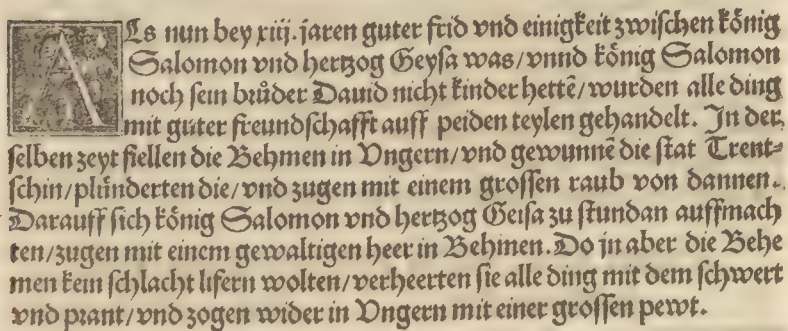 Als nun bey xiij. jaren guter frid vnd einigkeit zwischen könig
Salomon vnd hertzog Geysa was/ vnnd könig Salomon
noch sein brůder Dauid nicht kinder hettē/ wurden alle ding
mit guter freundschafft auff peiden teylen gehandelt. In der
selben zeyt fiellen die Behmen in Vngern/ vnd gewunnē die stat Trent⸗
schin/ plünderten die/ vnd zugen mit einem grossen raub von dannen.
Darauff sich könig Salomon vnd hertzog Geisa zu stundan auffmach
ten/ zugen mit einem gewaltigen heer in Behmen. Do jn aber die Behe
men kein schlacht lifern wolten/ verheerten sie alle ding mit dem schwert
vnd prant/ vnd zogen wider in Vngern mit einer grossen pewt.